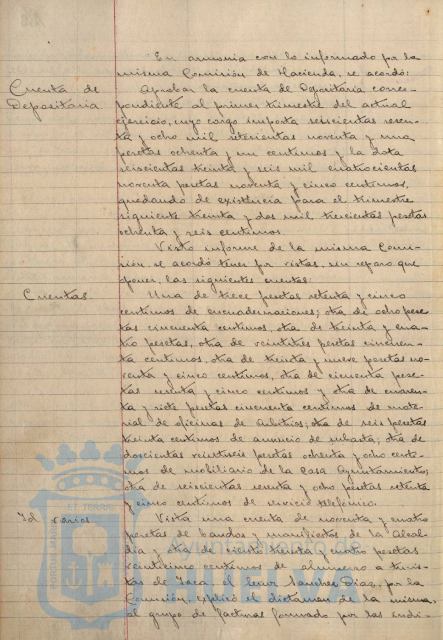 En armonia con lo informado por la
misma Comisión de Hacienda, se acordó:
Cuenta de
Depositaria
Aprobar la cuenta de Depositaria corres-
pondiente al primer trimestre del actual
ejercicio, cuyo cargo importa seiscientas sesen-
ta y ocho mil setecientas noventa y una
pesetas ochenta y un centimos y la data
seiscientas treinta y seis mil cuatrocientas
noventa pesetas noventa y cinco centimos,
quedando de existencia para el trimestre
siguiente treinta y dos mil trescientas pesetas
ochenta y seis centimos.
Visto informe de la misma Comi-
sión, se acordó tener por vistas, sin reparo que
oponer, las siguientes cuentas:
Cuentas.
Una de trece pesetas setenta y cinco
centimos de encuadernaciones; otra de ocho pese-
tas cincuenta centimos, otra de treinta y cua-
tro pesetas, otra de veintitres pesetas cincuen-
ta centimos, otra de treinta y nueve pesetas no-
venta y cinco centimos, otra de cincuenta pese-
tas y cinco centimos y otra de cuaren-
ta y siete pesetas cincuenta centimos de mate-
rial de oficinas de Arbitrios; otra de seis pesetas
treinta centimos de anuncio de subasta; otra de
doscientas veintiseis pesetas ochenta y ocho centi-
mos de mobiliario de la Casa Ayuntamiento;
otra de seiscientas sesenta y ocho pesetas setenta
y cinco centimos de servicio telefónico.
Id. varios.
Vista una cuenta de noventa y cuatro
pesetas de bandos y manifiestos de la Alcal-
dia y otra de ciento treinta y cuatro pesetas
veinticinco centimos de almuerzo a turis-
tas de Jaca, el señor Sanchez Diaz, por la
Comisión, explicó el dictamen de la misma,
al grupo de facturas formado por las indi-
ET TORRE
PORTUS MARIN
Ayuntamiento de